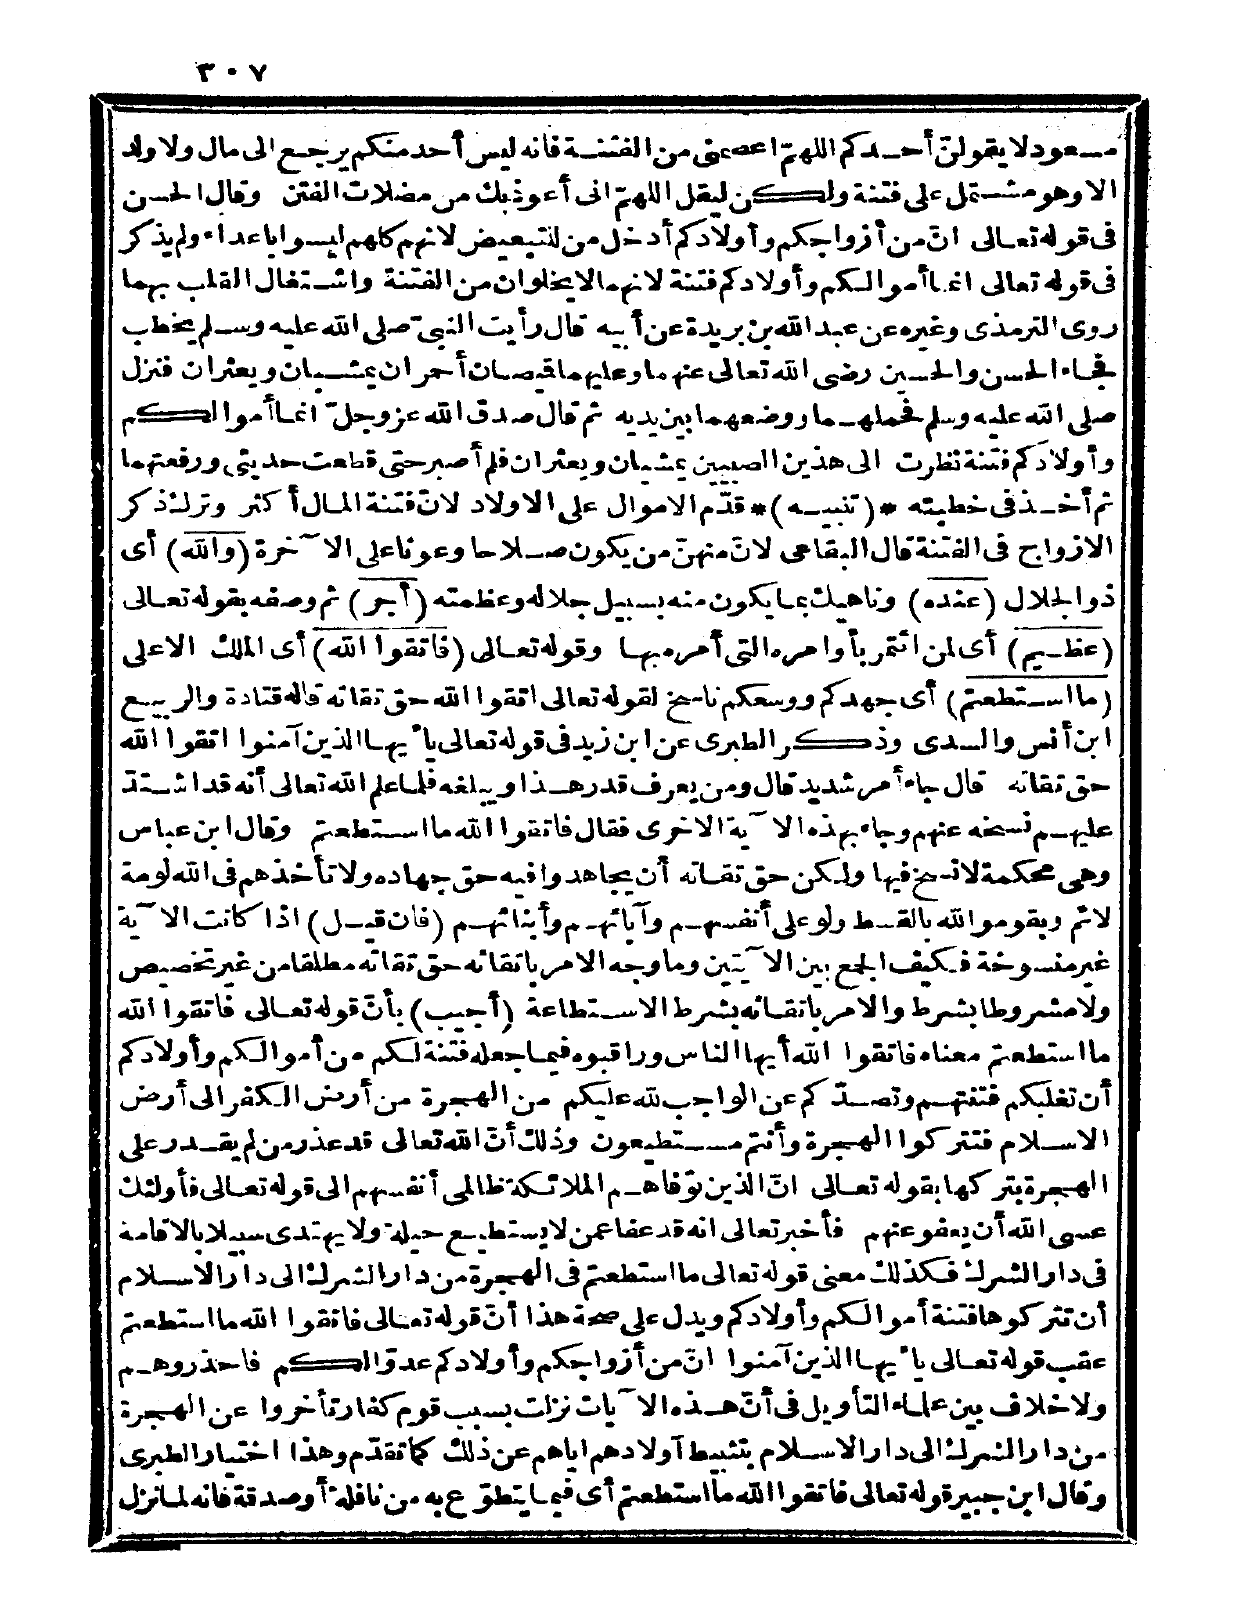 ٣٠٧
مسعود لا يقولنّ أحدكم اللهمّ اعصمنى من الفتنة فانه ليس أحد منكم يرجع الى مال ولا ولد
الا وهو مشتمل على فتنة ولكن ليقل اللهمّ انى أعوذ بك من مضلات الفتن وقال الحسن
فى قوله تعالى انّ من أزواجكم وأولادكم أدخل من للتبعيض لانهم كلهم ليسوا باعداء ولم يذكر
فى قوله تعالى انما أموالكم وأولادكم فتنة لانهما لا يخلوان من الفتنة واشتغال القلب بهما
روى الترمذى وغيره عن عبد الله بن بريدة عن أبيه قال رأيت النبىّ صلى الله عليه وسلم يخطب
فجاء الحسن والحسين رضى الله تعالى عنهما وعليهما قيصان أحمران يمشيان ويعثران فنزل
صلى الله عليه وسلم فحملهما ووضعهما بين يديه ثم قال صدق الله عز وجلّ انما أموالكم
وأولادكم فتنة نظرت الى هذين الصبيين يمشيان ويعثران فلم أصبر حتى قطعت حديثى ورفعتهما
ثم أخذ فى خطبته *(تنبيه)* قدّم الاموال على الاولاد لانّ فتنة المال أكثر وترك ذكر
الازواج فى الفتنة قال البقاعى لانّ منهنّ من يكون صلاحا وعونا على الآخرة (والله) أى
ذو الجلال (عنده) وناهيك بما يكون منه بسبيل جلاله وعظمته (أجر) ثم وصفه بقوله تعالى
(عظيم) أى لمن ائتمر بأوامره التى أمره بها وقوله تعالى (فاتقوا الله) أى الملك الاعلى
(ما استطعتم) أى جهدكم ووسعكم ناسخ لقوله تعالى اتقوا الله حق تقاته قاله قتادة والربيع
ابن أنس والسدى وذكر الطبرى عن ابن زيد فى قوله تعالى يا أيها الذين آمنوا اتقوا الله
حق تقاته قال جاء أمر شديد قال ومن يعرف قدر هذا ويبلغه فلما علم الله تعالى أنه قد اشتدّ
عليهم نسخه عنهم وجاء بهذه الآية الاخرى فقال فاتقوا الله ما استطعتم وقال ابن عباس
وهى محكمة لا نسخ فيها ولكن حق تقاته أن يجاهدوا فيه حق جهاده ولا تأخذهم فى الله لومة
لائم ويقوموا لله بالقسط ولو على أنفسهم وآبائهم وأبنائهم (فان قيل) اذا كانت الآية
غير منسوخة فكيف الجمع بين الآيتين وما وجه الامر باتقائه حق تقاته مطلقا من غير تخصيص
ولا مشروطا بشرط والامر باتقائه بشرط الاستطاعة (أجيب) بأنّ قوله تعالى فاتقوا الله
ما استطعتم معناه فاتقوا الله أيها الناس وراقبوه فيما جعله فتنة لكم من أموالكم وأولادكم
أن تغلبكم فتنتهم وتصدّكم عن الواجب لله عليكم من الهجرة من أرض الكفر الى أرض
الاسلام فتتركوا الهجرة وأنتم مستطيعون وذلك أنّ الله تعالى قد عذر من لم يقدر على
الهجرة بتركها بقوله تعالى انّ الذين توفاهم الملائكة ظالمى أنفسهم الى قوله تعالى فأولئك
عسى الله أن يعفو عنهم فأخبر تعالى انه قد عفا عمن لا يستطيع حيلة ولا يهتدى سبيلا بالاقامة
فى دار الشرك فكذلك معنى قوله تعالى ما استطعتم فى الهجرة من دار الشرك الى دار الاسلام
أن تتركوها فتنة أموالكم وأولادكم ويدل على صحة هذا أنّ قوله تعالى فاتقوا الله ما استطعتم
عقب قوله تعالى يا أيها الذين آمنوا انّ من أزواجكم وأولادكم عدوّا لكم فاحذروهم
ولا خلاف بين علماء التأويل فى أنّ هذه الآيات نزلت بسبب قوم كفار تأخروا عن الهجرة
من دار الشرك الى دار الاسلام بتثبيط أولادهم اياهم عن ذلك كما تقدّم وهذا اختيار الطبرى
وقال ابن جبير قوله تعالى فاتقوا الله ما استطعتم أى فيما يتطوّع به من نافلة أو صدقة فانه لما نزل